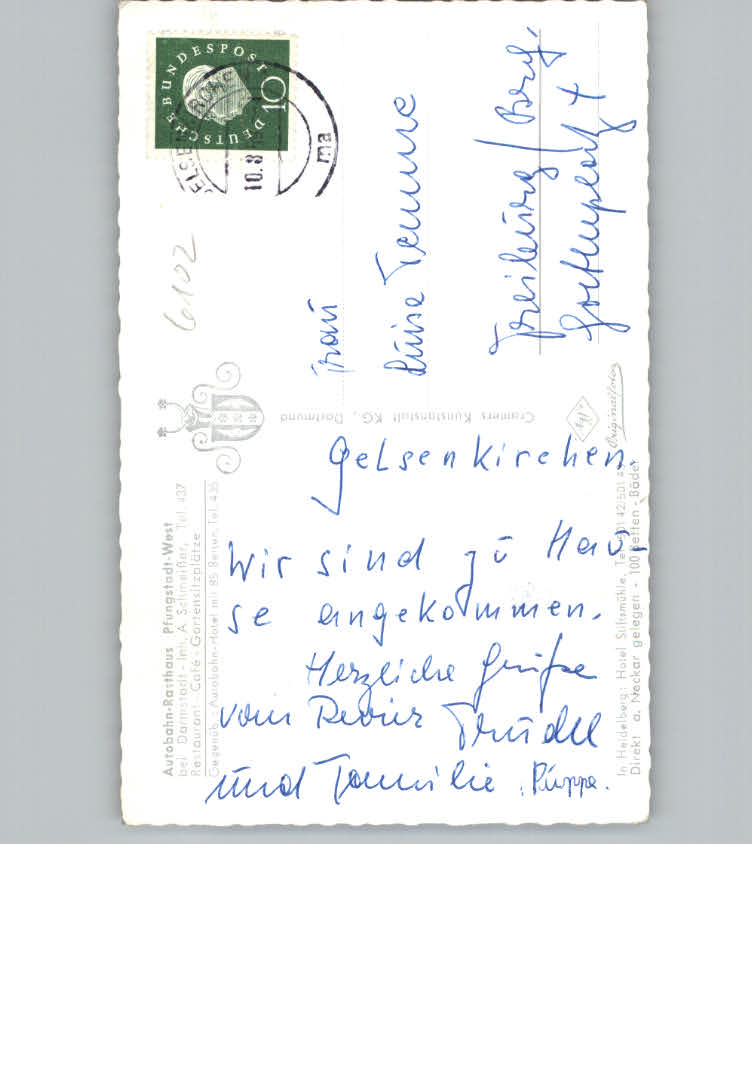 Autobahn-Rasthaus Pfungstadt-West
bei Darmstadt - Inh. A. Schmeißer, Tel. 437
Restaurant - Café - Gartensitzplätze
Gegenüb.: Autobahn-Hotel mit 85 Betten, Tel. 435
Gelsenkirchen.
Wir sind zu Hau-
se angekommen.
Herzliche Grüße
vom Revier Trudel
und Familie
DEUTSCHE BUNDESPOST
10
10.8
ma
6102
Cramers Kunstanstalt KG., Dortmund
Originalfoto
Frau
Luise Temme
Freiburg / Brsg.
4
In Heidelberg: Hotel Stiftsmühle, Tel.
Direkt a. Neckar gelegen - 100 Betten - Bäder